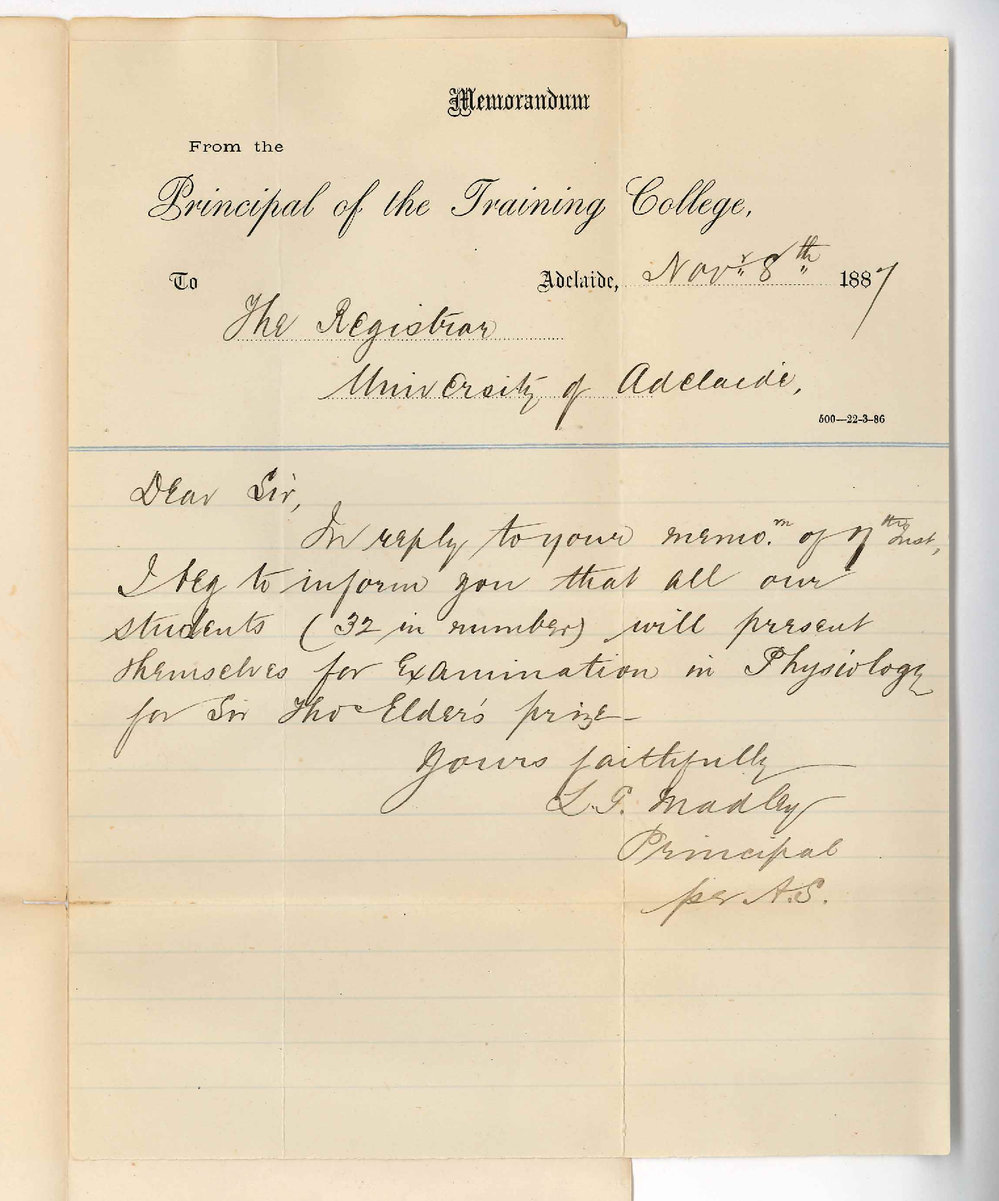 Memorandum
From the
Principal of the Training College,
To Adelaide, Novr 8th 1887
The Registrar
University of Adelaide,
500—22-3-86
Dear Sir,
In reply to your memo.m of 7th Inst,
I beg to inform you that all our
students (32 in number) will present
themselves for Examination in Physiology
for Sir Thos Elder's prize—
Yours faithfully
L. G. Madley
Principal
per A.S.